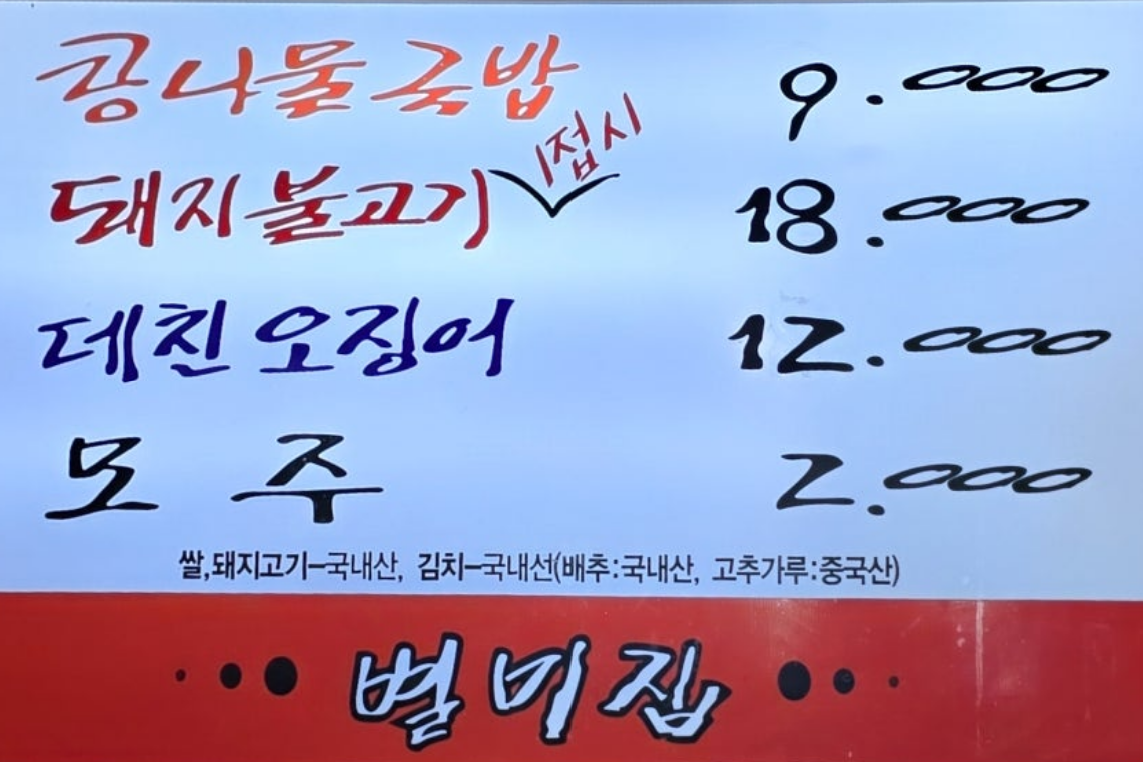 콩나물국밥 9.000
돼지불고기 1접시 18.000
데친오징어 12.000
모 주 2.000
쌀,돼지고기-국내산, 김치-국내선(배추:국내산, 고추가루:중국산)
별미집